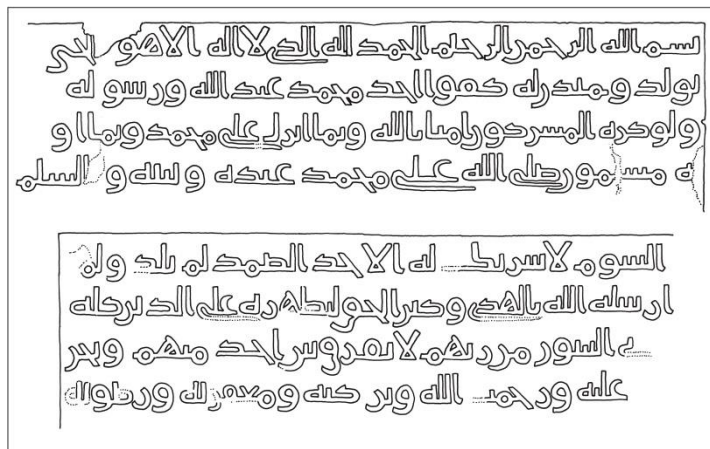 بسم الله الرحمن الرحيم الحمد لله الذي لا اله الا هو الحي
يولد ولم يكن له كفوا احد محمد عبد الله ورسوله
ولو كره المشركون امنا بالله وبما انزل على محمد وبما او
له مسلمون صلى الله على محمد عبده ونبيه والسلم
القيوم لا شريك له الاحد الصمد لم يلد ولم
ارسله الله بالهدى ودين الحق ليظهره على الدين كله
تي النبيون من ربهم لا نفرق بين احد منهم ونحن
عليه ورحمت الله وبركته ومغفرته ورضونه